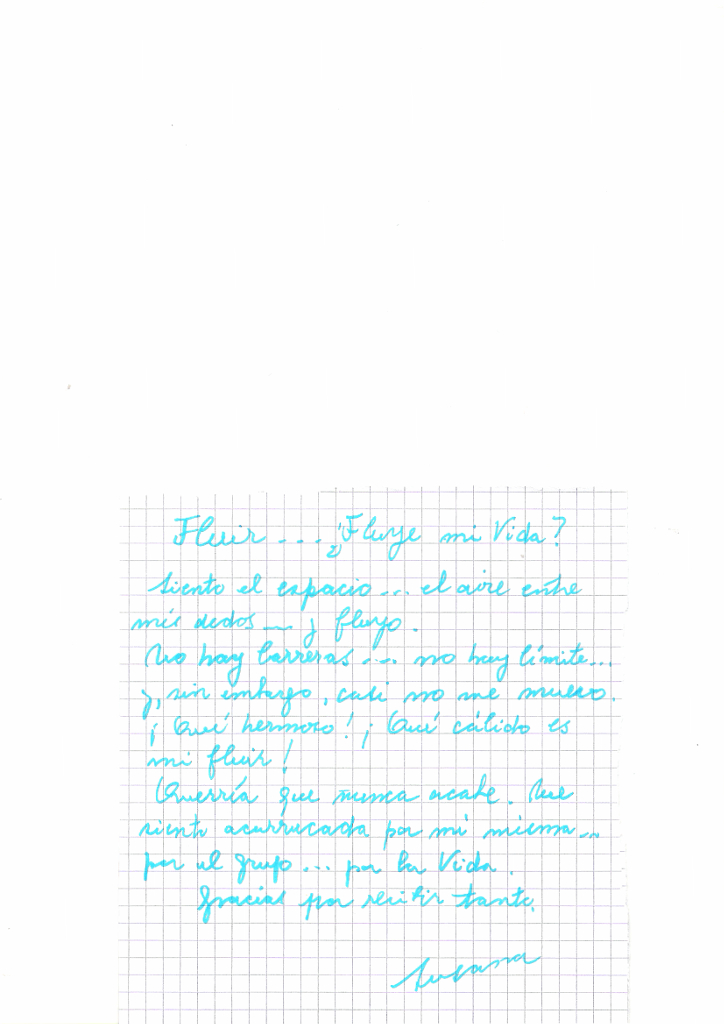 Fluir .... ¿Fluye mi Vida?
Siento el espacio... el aire entre
mis dedos... y fluyo.
No hay barreras... no hay límite...
y, sin embargo, casi no me muevo.
¡Qué hermoso! ¡Qué cálido es
mi fluir!
Querría que nunca acabe. Me
siento acurrucada por mí misma...
por el grupo... por la Vida.
Gracias por recibir tanto.
Susana